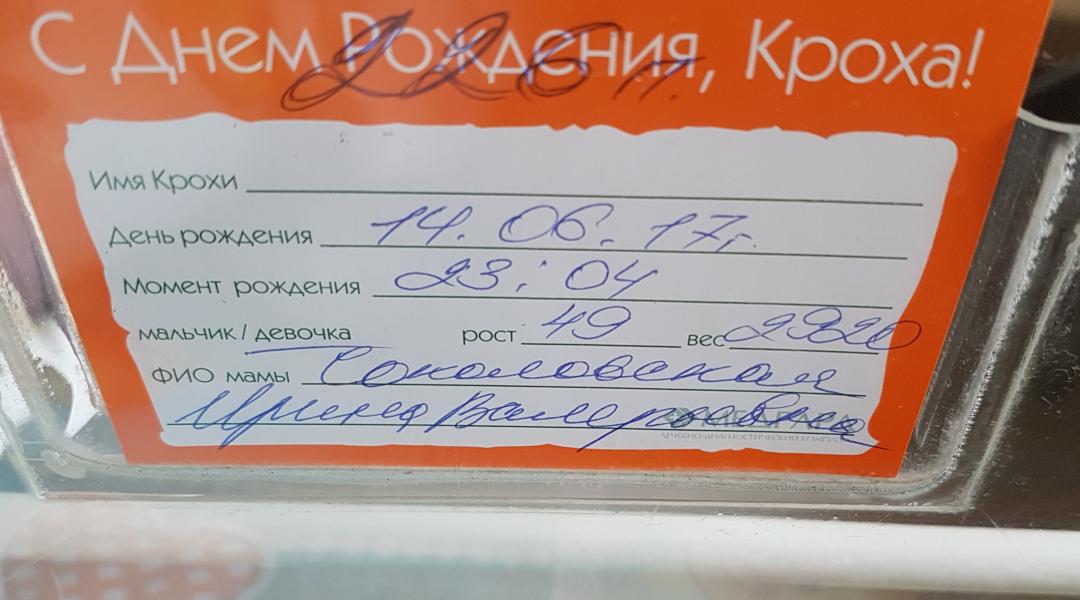 С Днем Рождения, Кроха!
226 п.
Имя Крохи
День рождения 14.06.17г.
Момент рождения 23:04
мальчик / девочка рост 49 вес 2920
ФИО мамы Соколовская
Ирина Валерьевна
ЛЕЧЕБНО-ДИАГНОСТИЧЕСКИЙ КОМПЛЕКС